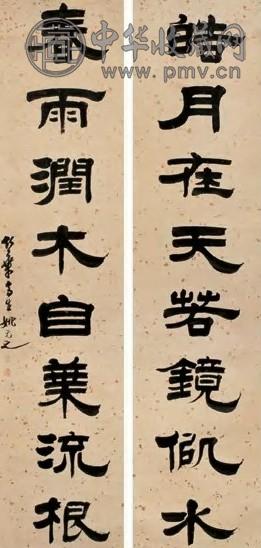 中华收藏网
www.pmv.cn
皓月在天若鏡水
春雨潤木自葉流根
竹葉亭生姚元之